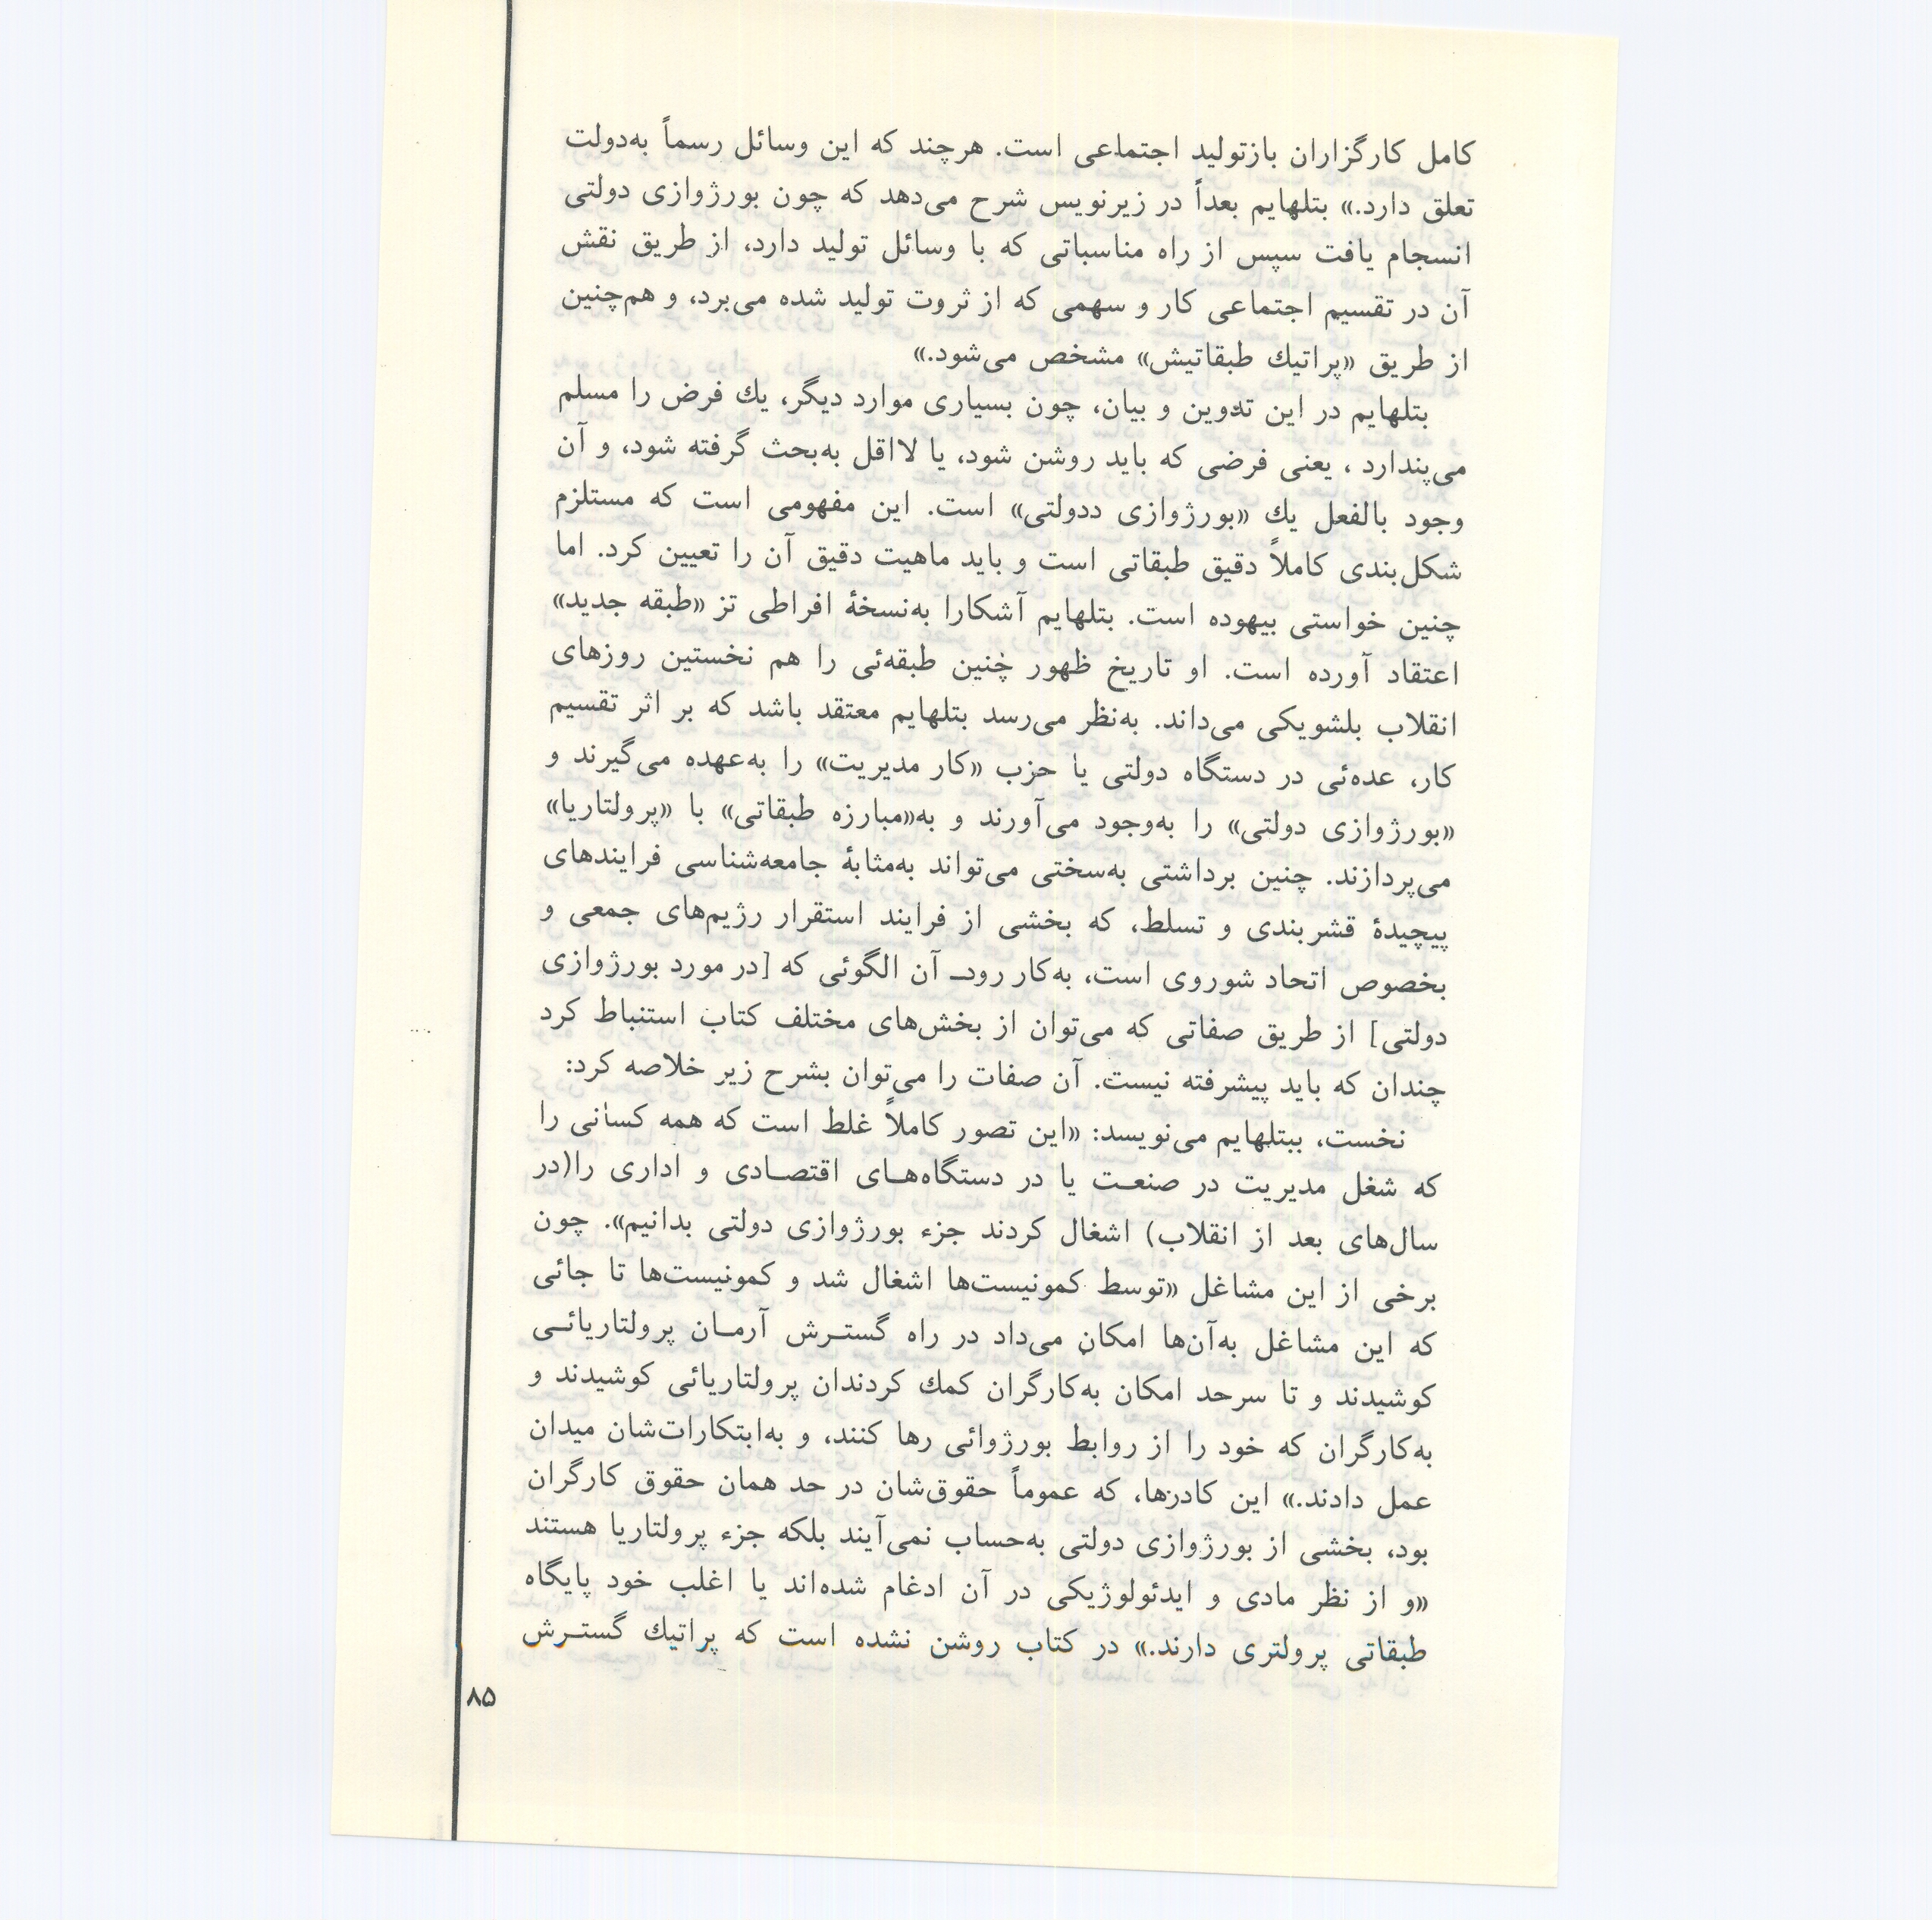 کامل کارگزاران بازتولید اجتماعی است. هرچند که این وسائل رسماً به‌دولت
تعلق دارد.» بتلهایم بعداً در زیرنویس شرح می‌دهد که چون بورژوازی دولتی
انسجام یافت سپس از راه مناسباتی که با وسائل تولید دارد، از طریق نقش
آن در تقسیم اجتماعی کار و سهمی که از ثروت تولید شده می‌برد، و هم‌چنین
از طریق «پراتیك طبقاتیش» مشخص می‌شود.»
بتلهایم در این تدوین و بیان، چون بسیاری موارد دیگر، یك فرض را مسلم
می‌پندارد ، یعنی فرضی که باید روشن شود، یا لااقل به‌بحث گرفته شود، و آن
وجود بالفعل یك «بورژوازی ددولتی» است. این مفهومی است که مستلزم
شکل‌بندی کاملاً دقیق طبقاتی است و باید ماهیت دقیق آن را تعیین کرد. اما
چنین خواستی بیهوده است. بتلهایم آشکارا به‌نسخهٔ افراطی تز «طبقه جدید»
اعتقاد آورده است. او تاریخ ظهور چنین طبقه‌ئی را هم نخستین روزهای
انقلاب بلشویکی می‌داند. به‌نظر می‌رسد بتلهایم معتقد باشد که بر اثر تقسیم
کار، عده‌ئی در دستگاه دولتی یا حزب «کار مدیریت» را به‌عهده می‌گیرند و
«بورژوازی دولتی» را به‌وجود می‌آورند و به‌«مبارزه طبقاتی» با «پرولتاریا»
می‌پردازند. چنین برداشتی به‌سختی می‌تواند به‌مثابهٔ جامعه‌شناسی فرایندهای
پیچیدهٔ قشربندی و تسلط، که بخشی از فرایند استقرار رژیم‌های جمعی و
بخصوص اتحاد شوروی است، به‌کار رودـ آن الگوئی که [در مورد بورژوازی
دولتی] از طریق صفاتی که می‌توان از بخش‌های مختلف کتاب استنباط کرد
چندان که باید پیشرفته نیست. آن صفات را می‌توان بشرح زیر خلاصه کرد:
نخست، ببتلهایم می‌نویسد: «این تصور کاملاً غلط است که همه کسانی را
که شغل مدیریت در صنعـت یا در دستگاه‌هـای اقتصـادی و اداری را(در
سال‌های بعد از انقلاب) اشغال کردند جزء بورژوازی دولتی بدانیم». چون
برخی از این مشاغل «توسط کمونیست‌ها اشغال شد و کمونیست‌ها تا جائی
که این مشاغل به‌آن‌ها امکان می‌داد در راه گستـرش آرمـان پرولتاریائـی
کوشیدند و تا سرحد امکان به‌کارگران کمك کردندان پرولتاریائی کوشیدند و
به‌کارگران که خود را از روابط بورژوائی رها کنند، و به‌ابتکارات‌شان میدان
عمل دادند.» این کادرها، که عموماً حقوق‌شان در حد همان حقوق کارگران
بود، بخشی از بورژوازی دولتی به‌حساب نمی‌آیند بلکه جزء پرولتاریا هستند
«و از نظر مادی و ایدئولوژیکی در آن ادغام شده‌اند یا اغلب خود پایگاه
طبقاتی پرولتری دارند.» در کتاب روشن نشده است که پراتیك گستـرش
۸۵